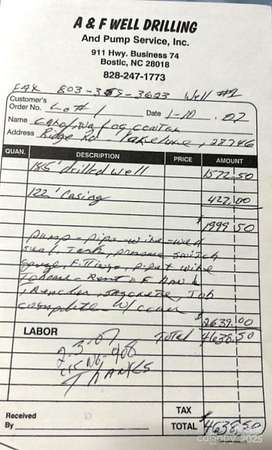 A & F WELL DRILLING
And Pump Service, Inc.
911 Hwy. Business 74
Bostic, NC 28018
828-247-1773
FAX 803-3 -3623 Well #2
Customer's
Order No. Lot 1 Date 1-10 .07
Name Carolina Log Center
Address Ridge Rd. Lake Lure, 28746
QUAN. DESCRIPTION PRICE AMOUNT
185' drilled well 1572.50
122' Casing 427.00
1999.50
Pump - pipe - wire - well
seal Tank, pressure switch
gauge, Fittings, pipe & wire
To
complete W/cover 2639.00
LABOR Total 4638.50
2.3.07
CK No. 908
THANKS
TAX
Received
By
TOTAL $4638.50
2025